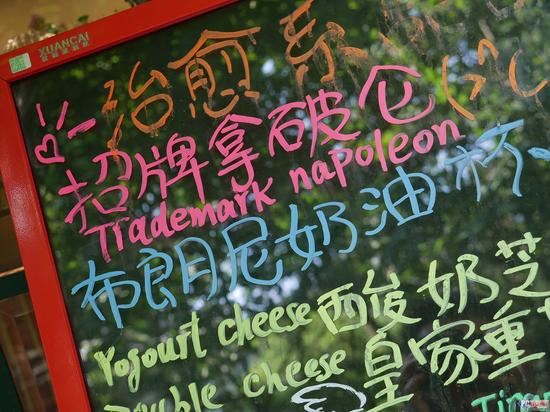 XUANCAI
治愈系
招牌拿破仑
Trademark napoleon
布朗尼奶油杯
Yogourt cheese 酸奶芝
Double cheese 皇家重